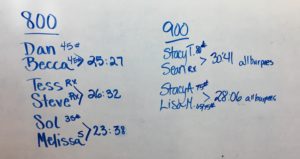 800
Dan 45#
Becca 45# > 25:27
Tess Rx
Steve Rx > 26:32
Sol 35#
Melissa S > 23:38
900
Stacy T.
Sean Rx > 30:41 all burpees
Stacy A 75#
Lisa M. > 28:06 all burpees